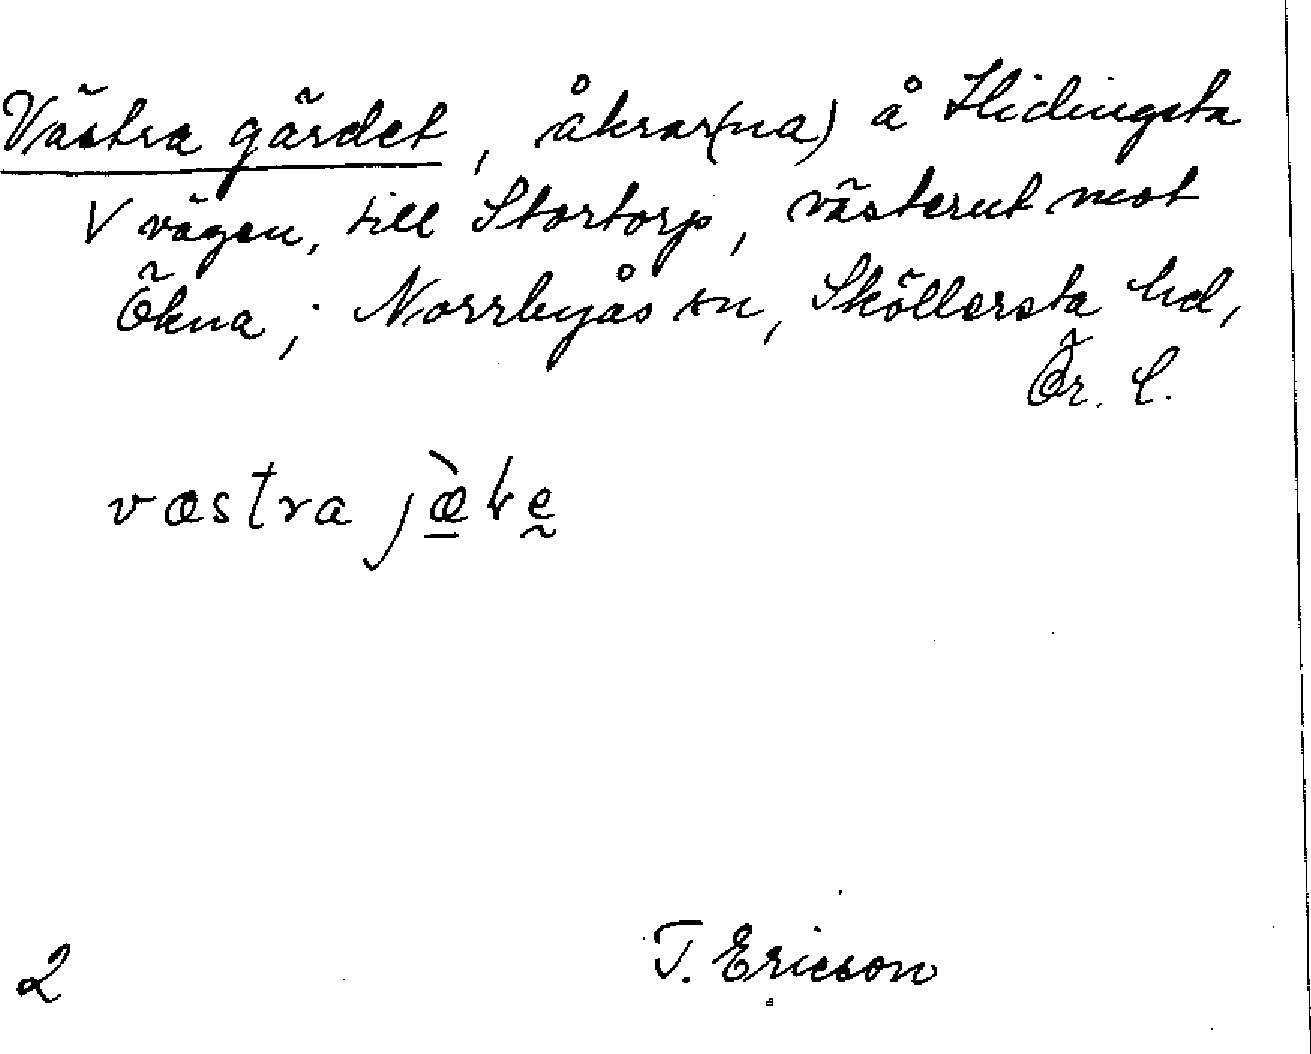 Västra gärdet, åkrar(na) å Hidingsta
V vägen, till Stortorp, västerut mot
Ökna; Norrbyås sn, Sköllersta hd,
Ör. l.
væstra
2 T. Ericson